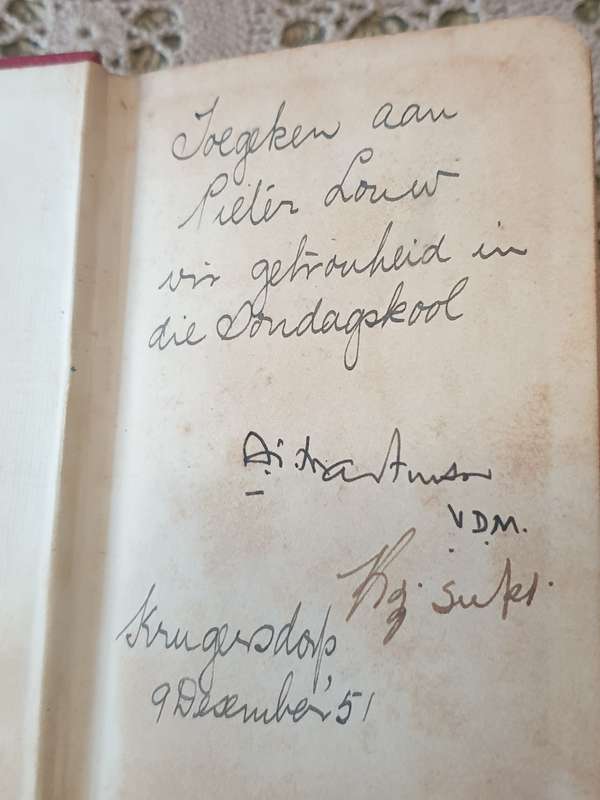 Toegeken aan
Pieter Louw
vir getrouheid in
die Sondagskool
V.D.M.
Krugersdorp,
9 Desember '51